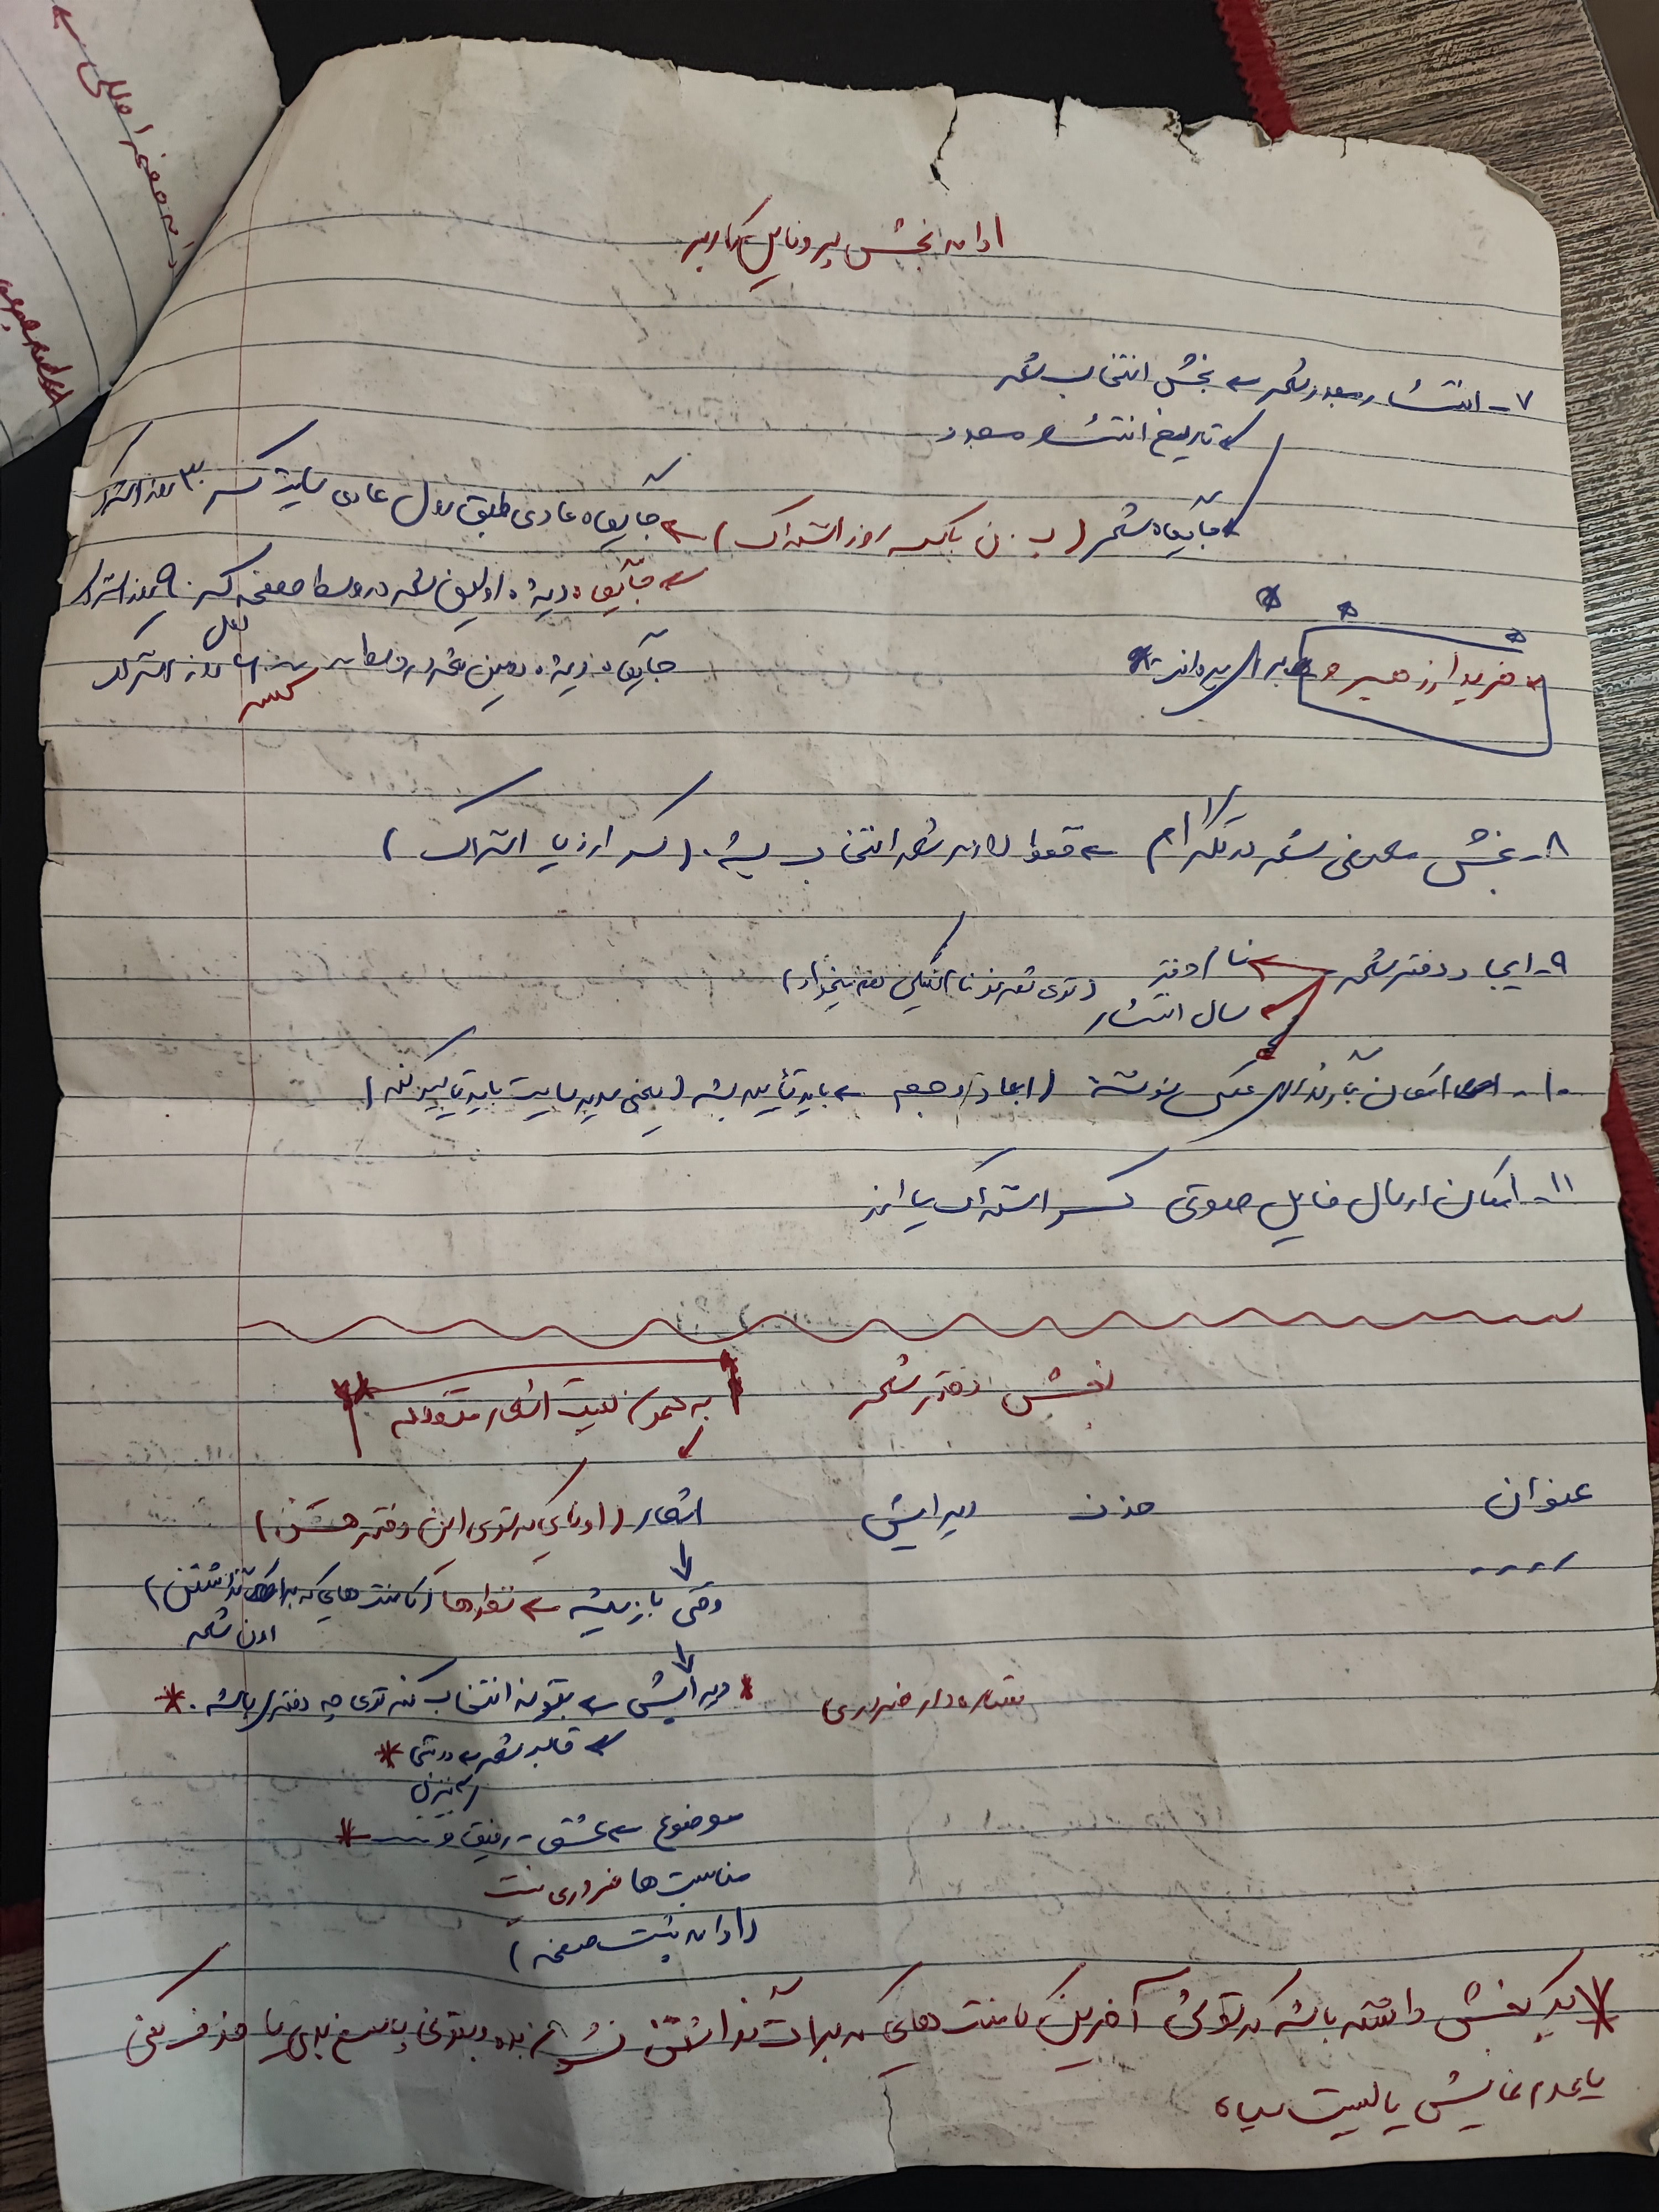 ادامه بخش پروفایل کاربر
۷- انتشار مجدد شعر ← بخش انتخاب شعر
← تاریخ انتشار مجدد
← جایگاه شعر ( با کسر روز اشتراک ) ← جایگاه عادی طبق روال عادی سایت کسر ۳۰ روز اشتراک
← جایگاه ویژه اولین شعر در وسط صفحه کسر ۹۰ روز اشتراک
جایگاه ویژه دومین شعر در وسط روز اشتراک
کسر
خرید ارز برای پرداخت
۸- بخش معرفی شعر در تلگرام ← فقط لازمه شعر انتخاب بشه. ( کسر ارز یا اشتراک )
۹- ایجاد دفتر شعر ← نام دفتر ( توی شعر نو نام انگلیسی هم میخواد )
← سال انتشار
۱۰- امکان بارگذاری عکس نوشته ( ابعاد / حجم ← باید تأیید بشه ( یعنی مدیر سایت باید تایید کنه )
۱۱- امکان ارسال فایل صوتی کسر اشتراک یا ارز
بخش دفتر شعر
به همون لیست اشعار متصله
عنوان حذف ویرایش اشعار ( اونایی که توی این دفتر هستن )
وقتی باز میشه ← نظرها ( کامنت هایی که برا گذاشتن )
اون شعر
ستاره دار ضروری
* ویرایش ← بتونه انتخاب کنه توی چه دفتری باشه . *
← قالب شعر *
موضوع ← عشق - رفیق و ... *
مناسبت ها ضروری نیست
( ادامه پشت صفحه )
* یک بخش داشته باشه که توش آخرین کامنت هایی که برات گذاشتن نشون بده و بتونی پاسخ بدی یا حذف کنی
یا عدم نمایش یا لیست سیاه